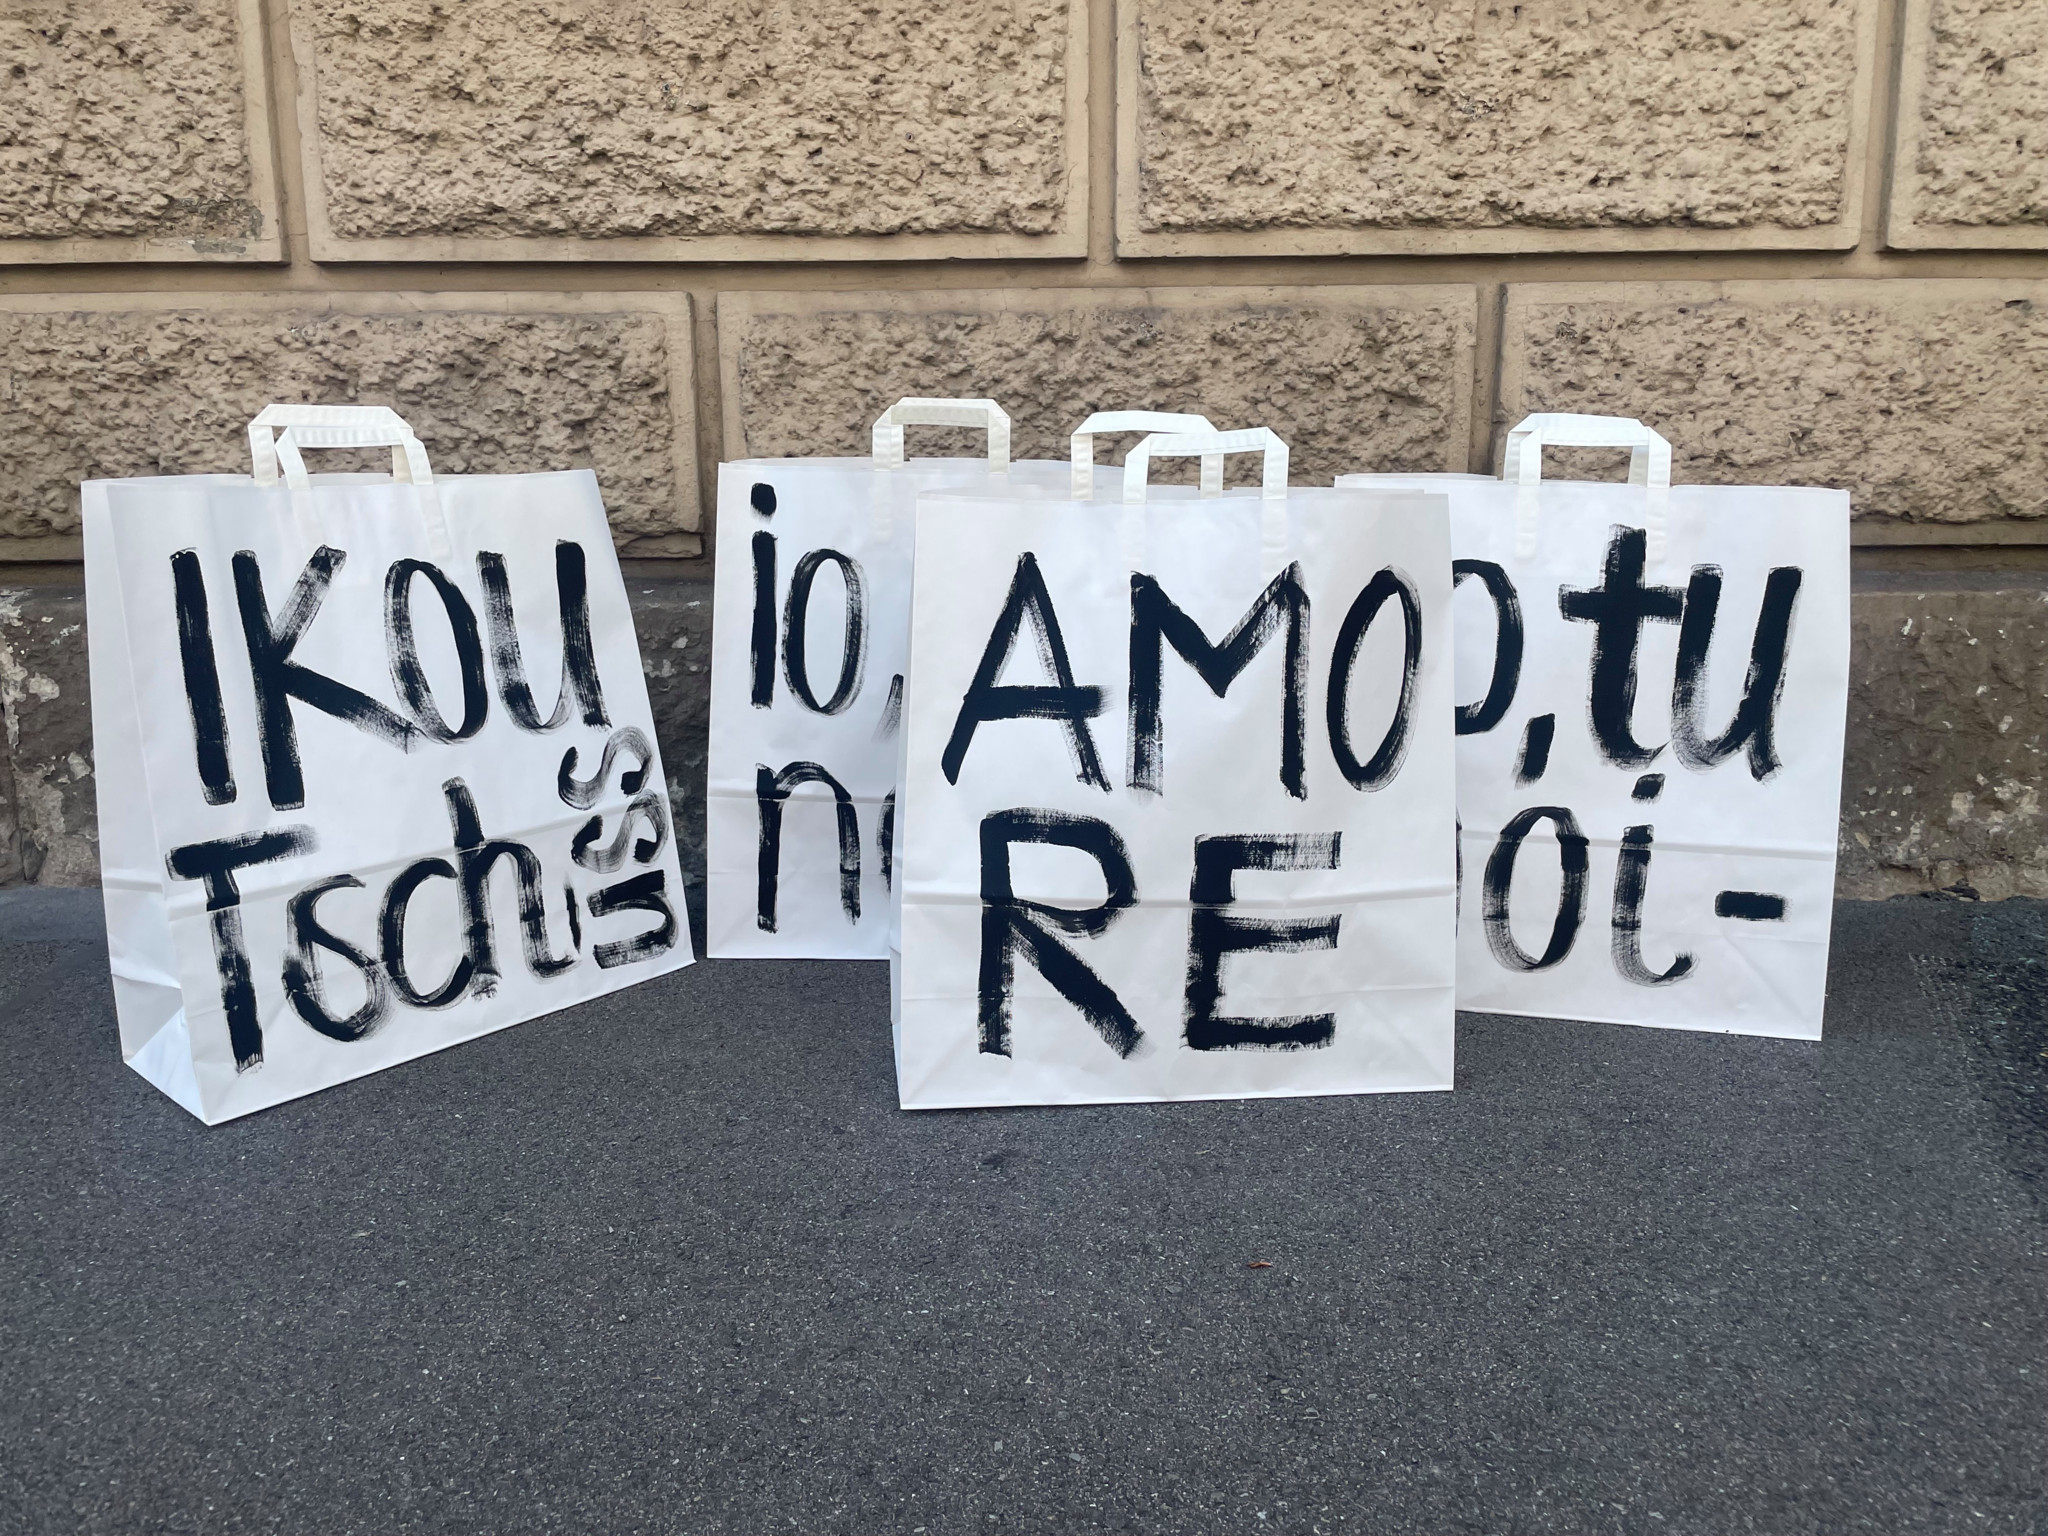 IKOU
Tschüss
io,
AMO
RE
, tu
oi-